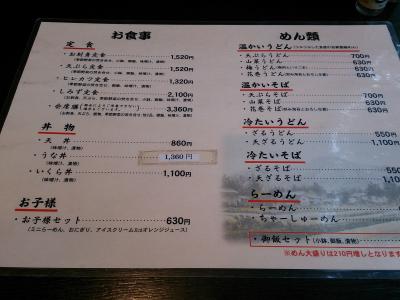 お食事
定食
・お刺身定食 1,520円
・天ぷら定食 1,520円
・ヒレカツ定食 1,320円
・しみず定食 2,100円
・会席膳 3,360円
丼物
・天丼 860円
(味噌汁、漬物)
・うな丼 1,360円
(味噌汁、漬物)
・いくら丼 1,100円
(味噌汁、漬物)
お子様
・お子様セット 630円
(ミニらーめん、おにぎり、アイスクリーム又はオレンジジュース)
めん類
温かいうどん
・天ぷらうどん 700円
・山菜うどん 630円
・梅うどん 630円
・花巻うどん 630円
温かいそば
・天ぷらそば 700円
・山菜そば 630円
・花巻そば 630円
冷たいうどん
・ざるうどん 550円
・天ざるうどん 1,100円
冷たいそば
・ざるそば 550
・天ざるそば 1,100
らーめん
・らーめん
・ちゃーしゅーめん
・御飯セット(小鉢、御飯、漬物)
※めん大盛りは210円増しとなります